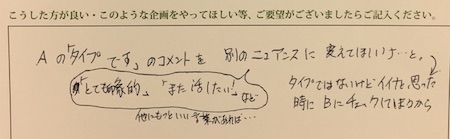 こうした方が良い・このような企画をやってほしい等、ご要望がございましたらご記入ください。
Aの「タイプです」のコメントを 別のニュアンスに変えてほしいな…と。
「とても印象的」「また話したい!」など
他にもっといい言葉があれば…
タイプではないけどイイナと思った
時にBにチェックしてしまうから